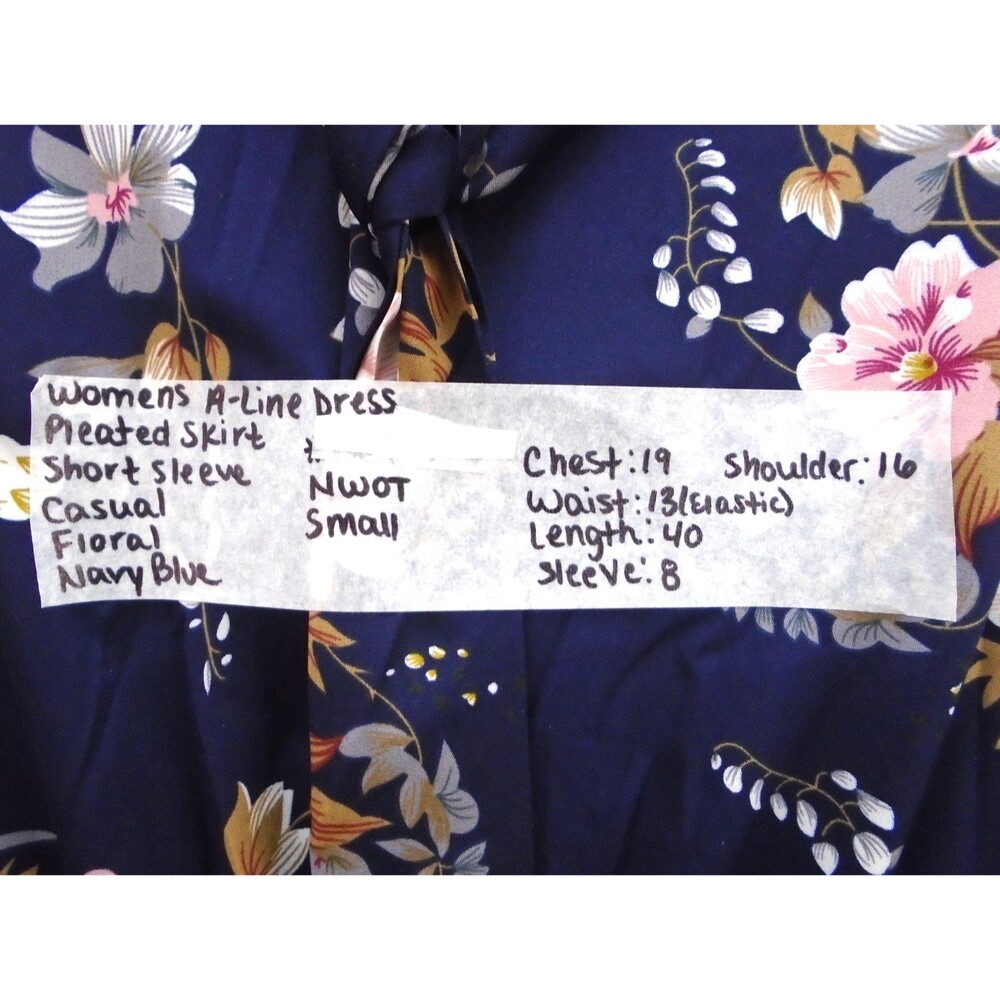 Womens A-Line Dress
Pleated Skirt
Short Sleeve
Casual
Floral
Navy Blue
NWOT
Small
Chest: 19
Waist: 13(Elastic)
Length: 40
Sleeve: 8
Shoulder: 16